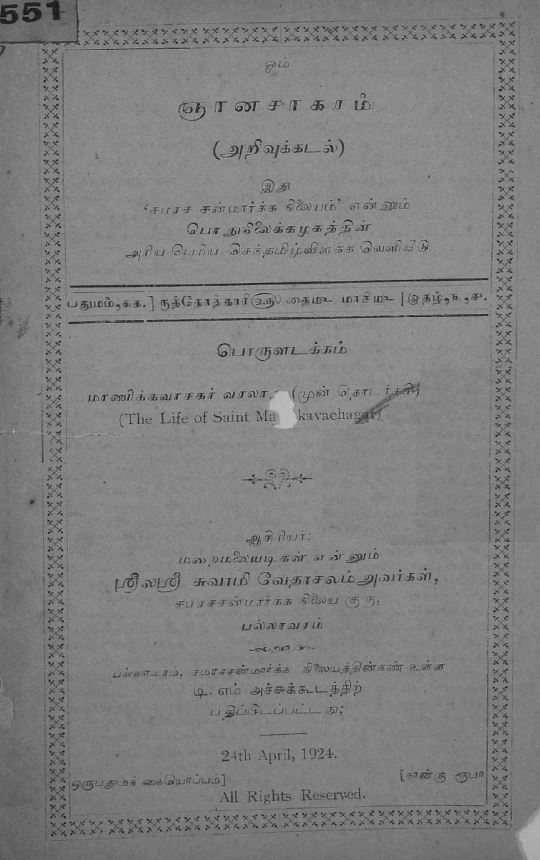 551
ஓம்
ஞானசாகரம்
(அறிவுக்கடல்)
இது
‘சமரச சன்மார்க்க நிலையம்’ என்னும்
பொதுநிலைக்கழகத்தின்
அரிய பெரிய செந்தமிழ்விளக்க வெளியீடு
பதுமம்,கக.] ருத்தோத்காரி தைமீ மாசிமீ [இதழ்,
பொருளடக்கம்
மாணிக்கவாசகர் (முன் தொடர்ச்சி)
(The Life of Saint kavachagar)
ஆசிரியர்:
மறைமலையடிகள் என்னும்
ஸ்ரீலஸ்ரீ சுவாமி வேதாசலம் அவர்கள்,
சமரசசன்மார்க்க நிலைய குரு,
பல்லாவரம்
பல்லாவரம், சமரசசன்மார்க்க நிலையத்தின்கண் உள்ள
டி. எம் அச்சுக்கூடத்திற்
பதிப்பிடப்பட்டது;
24th April, 1924.
ஒருபதுமக் கையொப்பம்] [நான்கு ரூபா
All Rights Reserved.